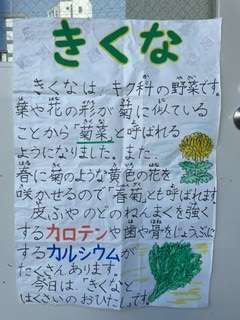 きくな
きくなは、キク科の野菜です。
葉や花の形が菊に似ている
ことから「菊菜」と呼ばれる
ようになりました。また、
春に菊のような黄色の花を
咲かせるので「春菊」とも呼ばれます。
皮ふやのどのねんまくを強く
するカロテンや歯や骨をじょうぶに
するカルシウムが
たくさんあります。
今日は「きくなと
はくさいのおひたし」です。